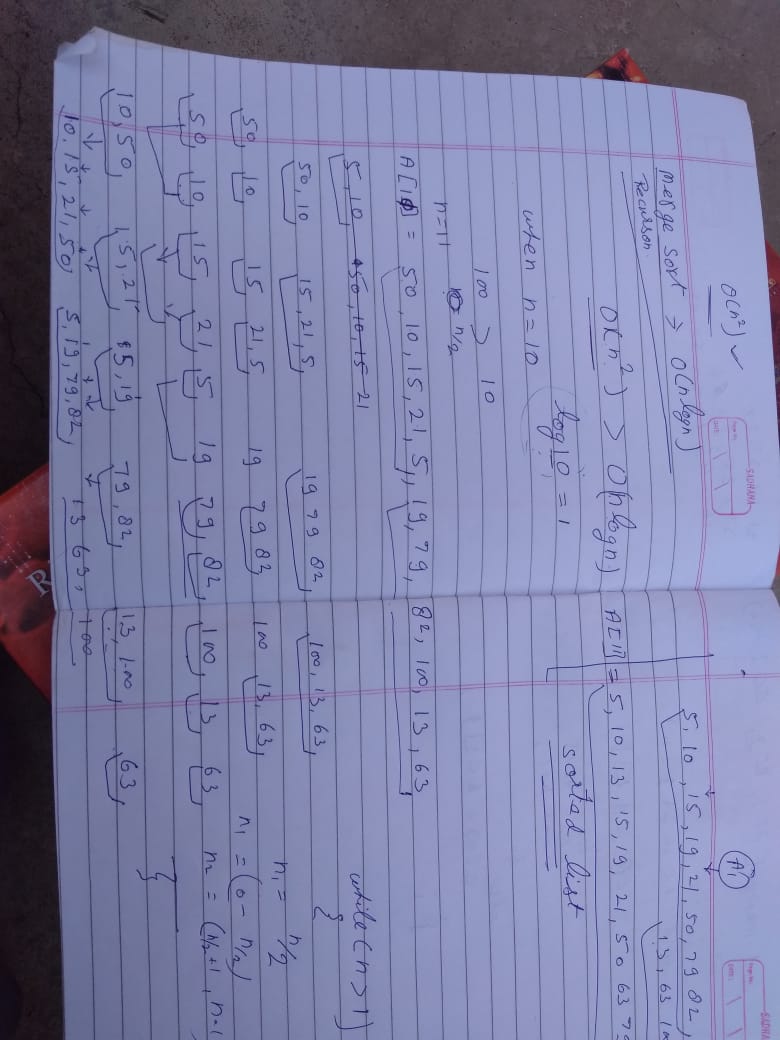 O(n²) ✓
SADHANA
Merge Sort → O(n log n)
Recursion.
O(n²) > O(n log n)
when n = 10
log 10 = 1
100 > 10
n = 11 n/2
A[10] = 50, 10, 15, 21, 5, 19, 79, 82, 100, 13, 63
5, 10 50, 10, 15 21
50, 10 15, 21, 5, 19 79 82, 100, 13, 63,
50, 10 15 21, 5 19 79 82 100 13, 63,
50 10 15 21, 5 19 79, 82, 100, 13 63
10, 50, 15, 21 5, 19 79, 82, 13, 100 63,
10, 15, 21, 50 5, 19, 79, 82, 13 63, 100
A1
5, 10, 15, 19, 21, 50, 79 82,
13, 63
A[11] = 5, 10, 13, 15, 19, 21, 50 63
sorted list
while (n > 1)
{
n₁ = n/2
n₁ = (0 - n/2)
n₂ = (n/2 + 1, n-1
}
SADHANA